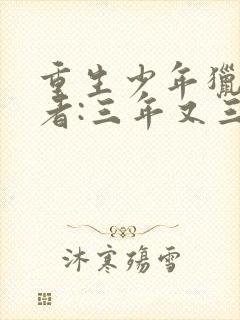 重生少年獵
者:三年又三
沐寒殤雪